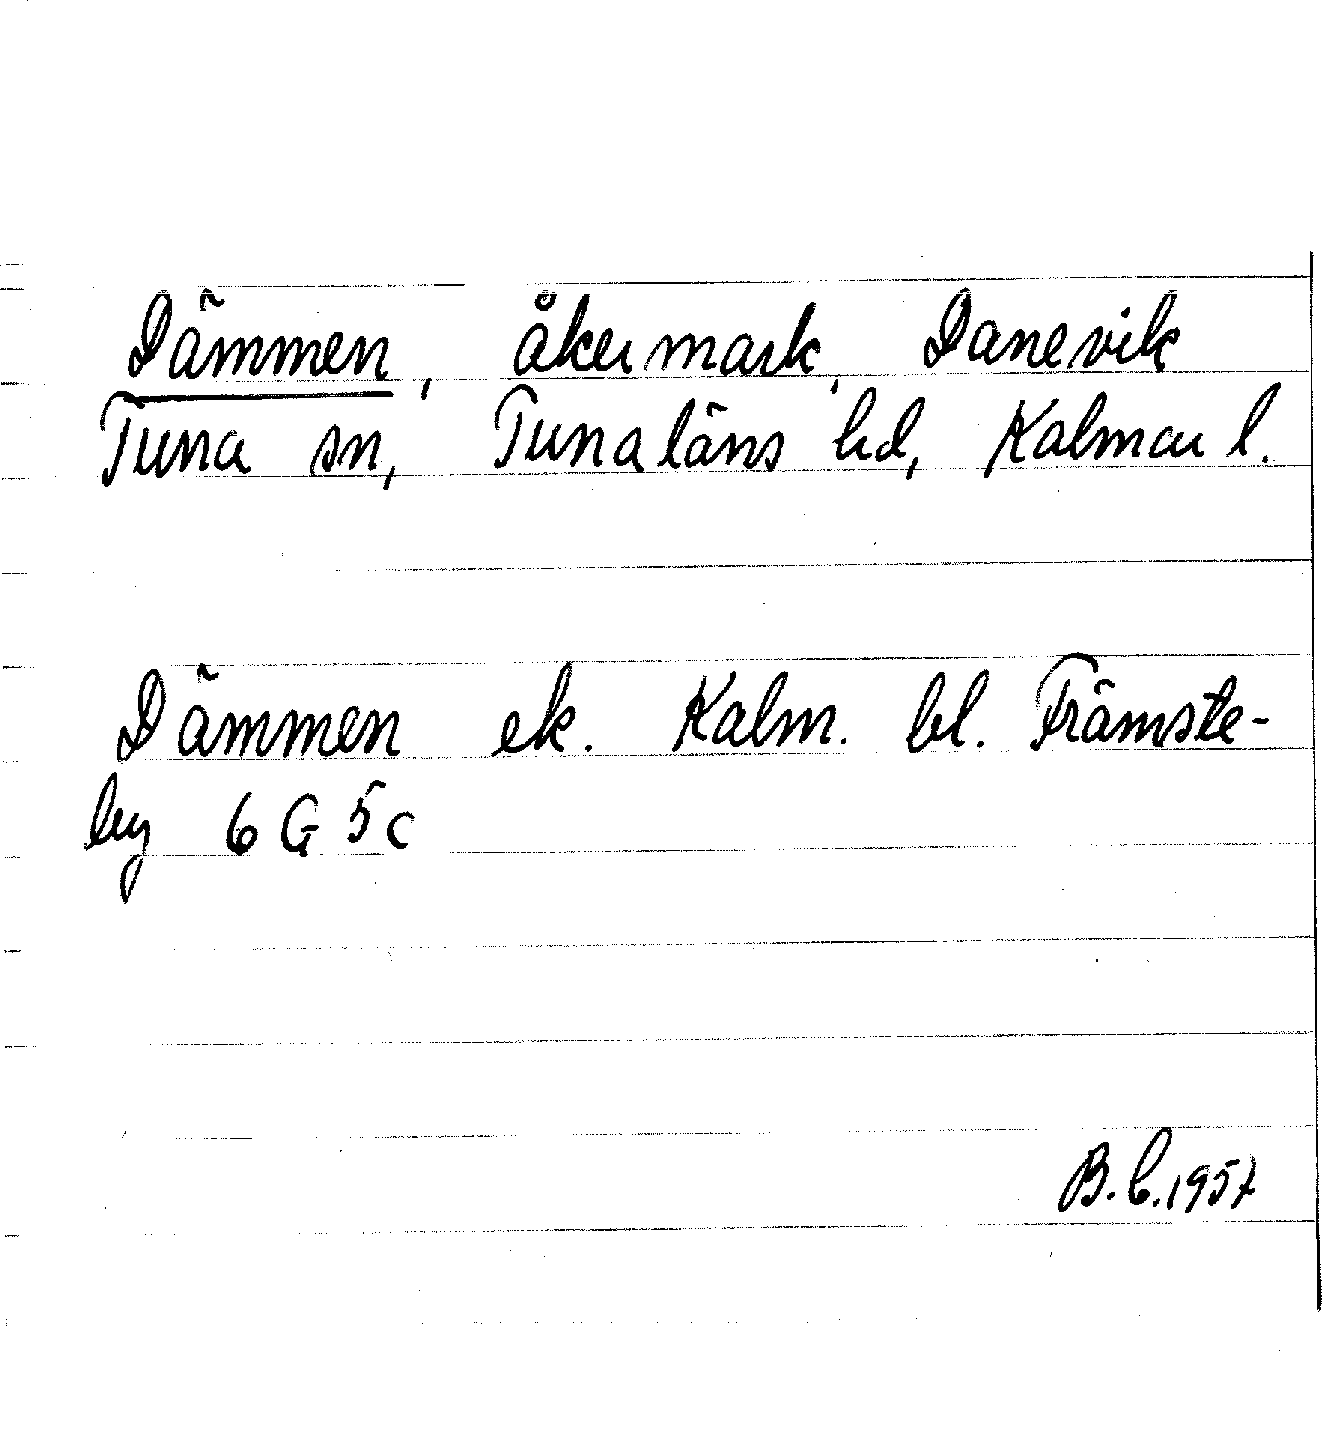 Dämmen, åkermark, Danevik
Tuna sn, Tunaläns hd, Kalmar l.
Dämmen ek. Kalm. bl. Främste-
by 6 G 5 c
B.C.1957